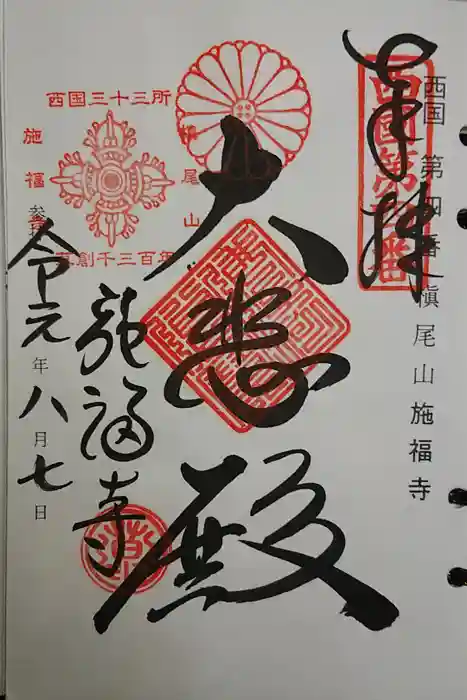 西国 第四番 槇尾山施福寺
奉拝
西國第四番
大悲殿
西国三十三所
槇尾山
施福寺
草創千三百年
施福寺
令元年八月七日